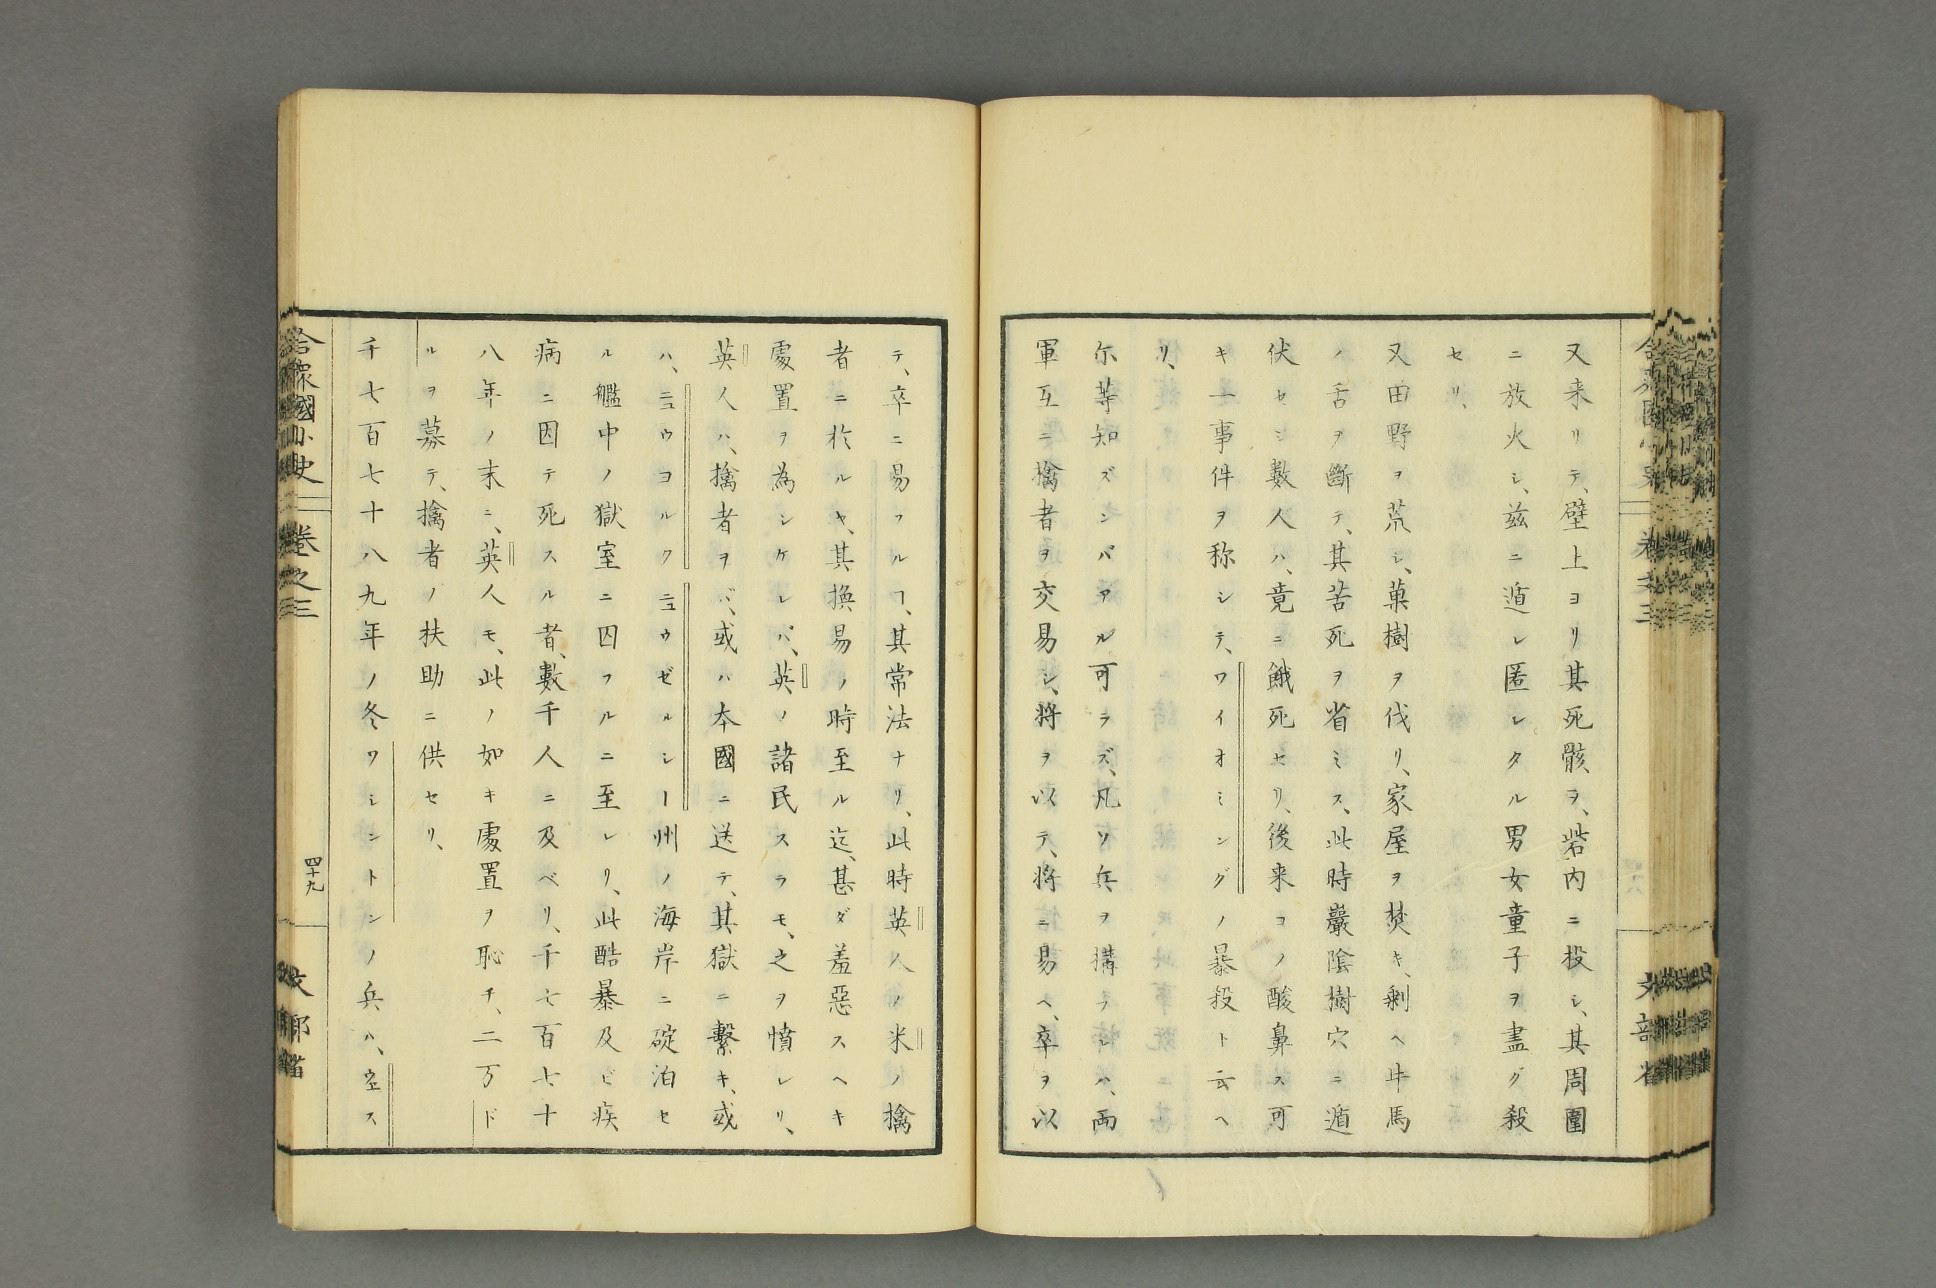 又来リテ、壁上ヨリ其死骸ヲ、砦内ニ投シ、其周圍
ニ放火シ、茲ニ遁レ匿レタル男女童子ヲ盡ク殺
セリ、
又田野ヲ荒シ、菓樹ヲ伐リ、家屋ヲ焚キ、剰ヘ牛馬
ノ舌ヲ斷テ、其苦死ヲ省ミス、此時巖陰樹穴ニ遁
伏セシ數人ハ、竟ニ餓死セリ、後来コノ酸鼻ス可
キ一事件ヲ称シテ、ワイオミングノ暴殺ト云ヘ
リ、
尓等知ズンバアル可ラズ、凡ソ兵ヲ搆フレハ、両
軍互ニ擒者ヲ交易シ、将ヲ以テ、将ニ易ヘ、卒ヲ以
テ、卒ニ易フルヿ、其常法ナリ、此時英人ノ米ノ擒
者ニ於ルヤ、其換易ノ時至ル迄、甚ダ羞惡スヘキ
處置ヲ為シケレバ、英ノ諸民スラモ、之ヲ憤レリ、
英人ハ、擒者ヲバ、或ハ本國ニ送テ、其獄ニ繋キ、或
ハ、ニュウヨルクニュウゼルシー州ノ海岸ニ碇泊セ
ル艦中ノ獄室ニ囚フルニ至レリ、此酷暴及ビ疾
病ニ因テ死スル者、數千人ニ及ベリ、千七百七十
八年ノ末ニ、英人モ、此ノ如キ處置ヲ恥チ、二万ド
ルヲ募テ、擒者ノ扶助ニ供セリ、
千七百七十八九年ノ冬ワシントンノ兵ハ、ミス
合衆國小史 卷之三
四十九
文部省